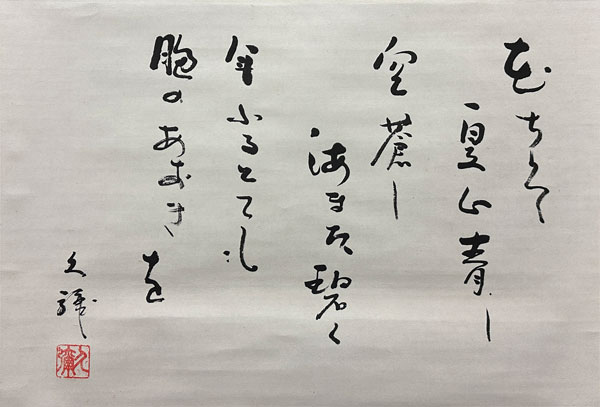 花ちりて
夏山青し
空蒼し
海また碧く
年ふるとても
胸のあおきを
久彌